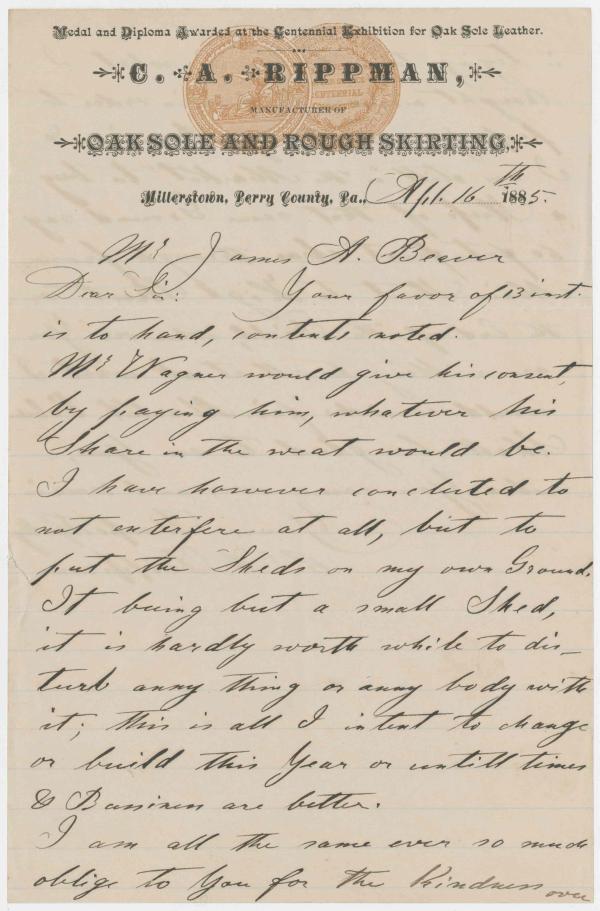 Medal and Diploma Awarded at the Centennial Exhibition for Oak Sole Leather.
C. A. RIPPMAN,
CENTENNIAL
MANUFACTURER OF
OAK SOLE AND ROUGH SKIRTING,
Millerstown, Perry County, Pa., Apl. 16th 1885.
Mr James A. Beaver
Dear Sir: Your favor of 13 inst.
is to hand, contents noted.
Mr Wagner would give his consent,
by paying him, whatever his
Share in the weat would be.
I have however concluted to
not enterfere at all, but to
put the Sheds on my own Ground.
It being but a small Shed,
it is hardly worth while to dis-
turb anny thing or anny body with
it; this is all I intent to change
or build this Year or untill times
& Bussiness are better.
I am all the same ever so much
oblige to You for the Kindness
over